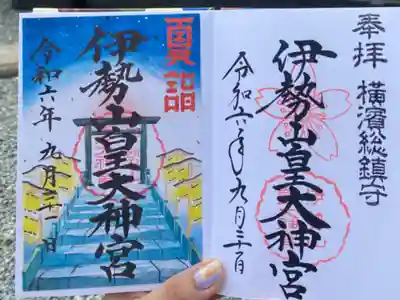 奉拝 横濱総鎮守
伊勢山皇大神宮
令和六年九月三十日
夏詣
伊勢山皇大神宮
令和六年九月三十日